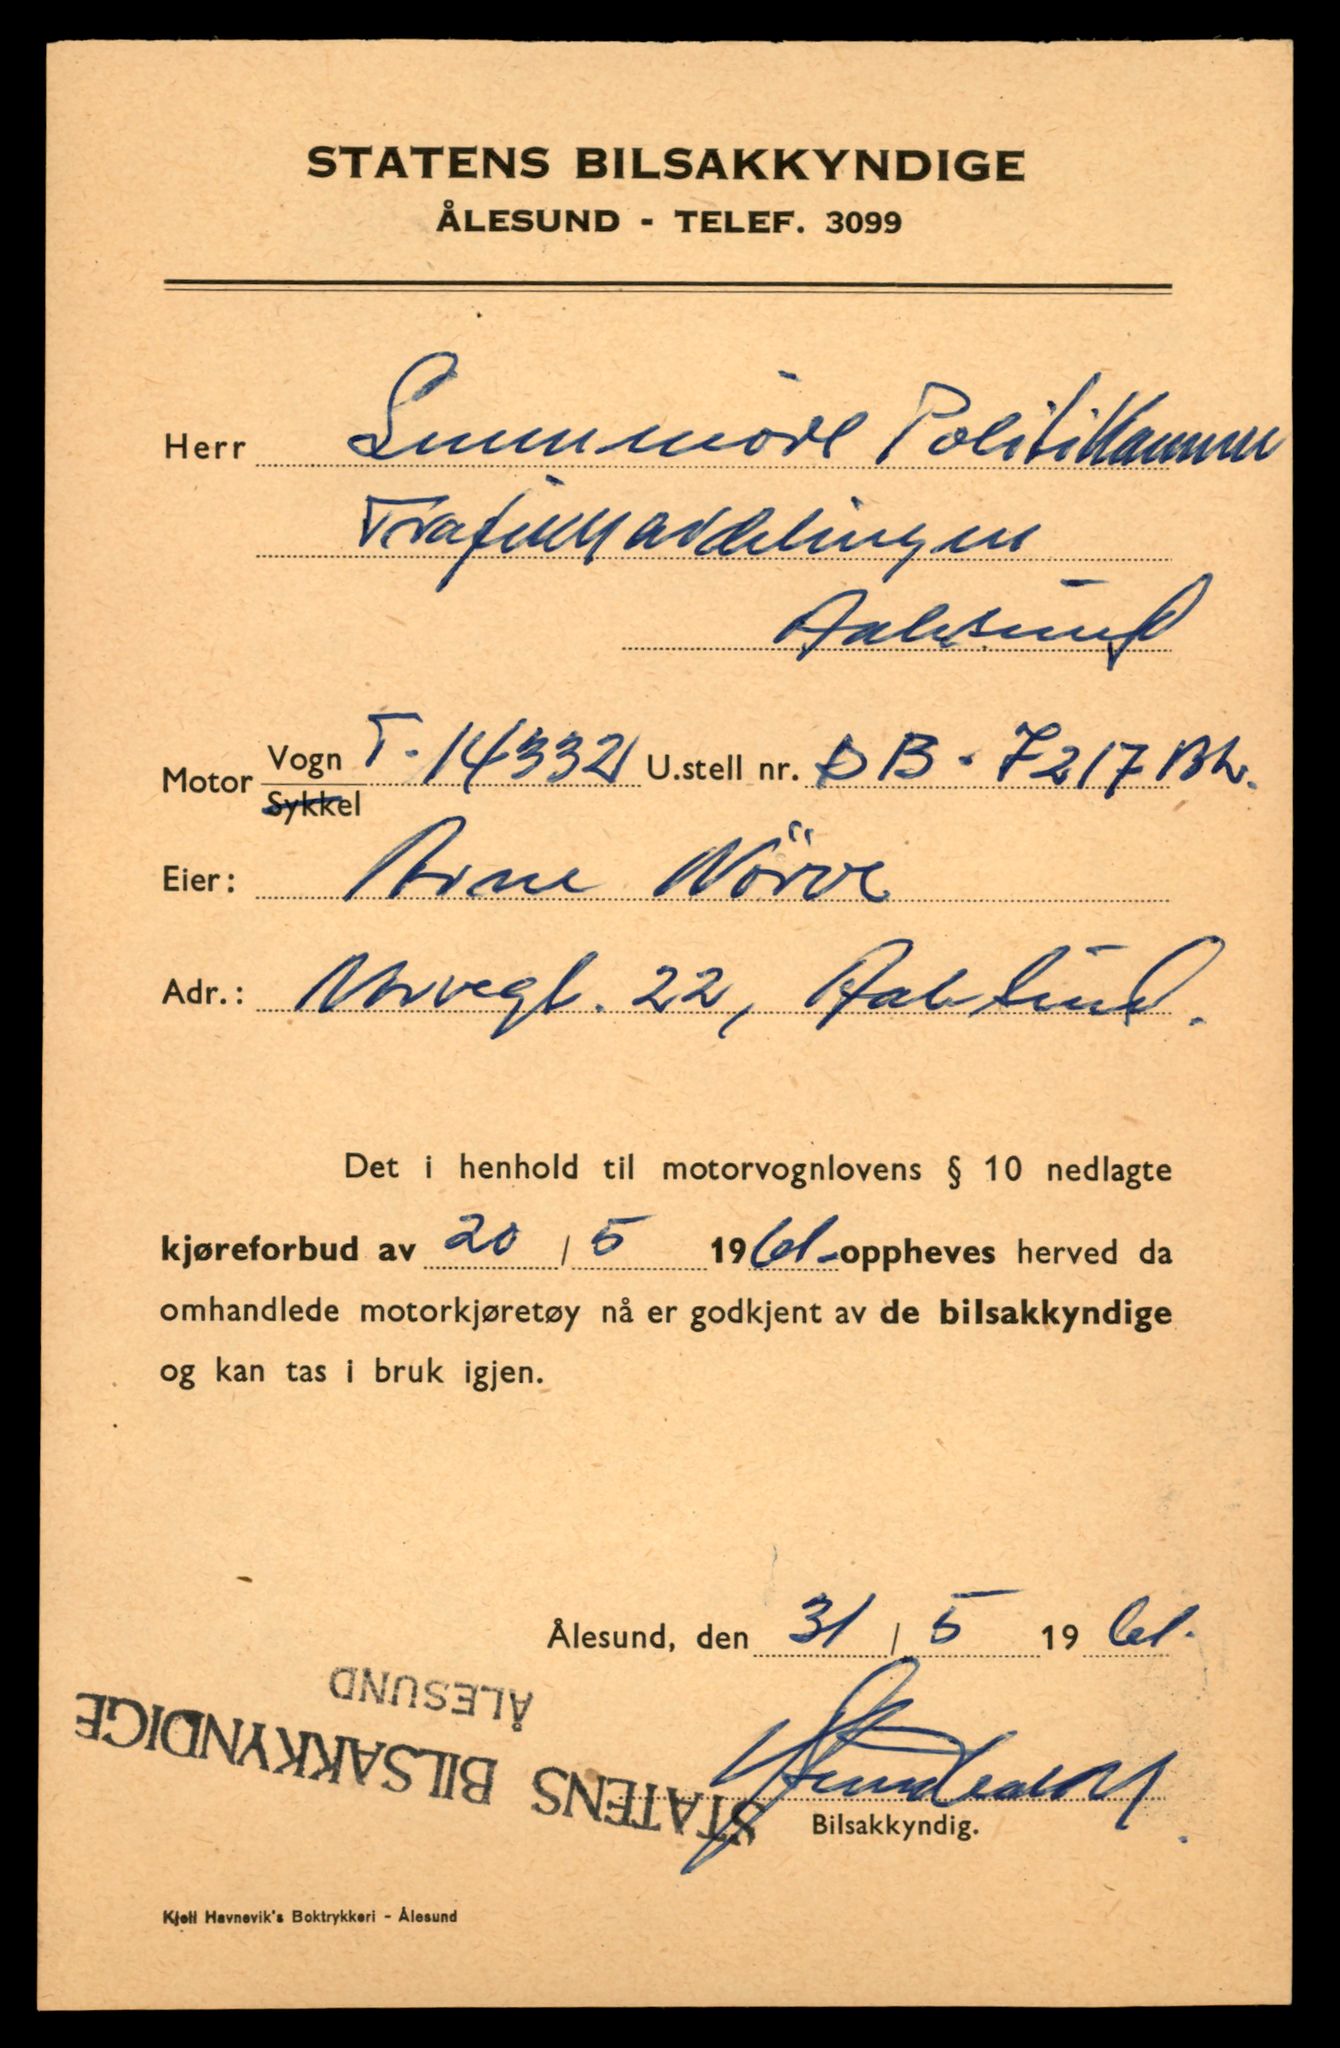 STATENS BILSAKKYNDIGE
ÅLESUND - TELEF. 3099
Herr Sunnmöre Politikammer
Trafikkavdelingen
Aalesund
Motor Vogn T-14332 U.stell nr. DB-7217 Bh.
Sykkel
Eier: Arne Nörve
Adr.: 22, Aalesund.
Det i henhold til motorvognlovens § 10 nedlagte
kjøreforbud av 20 / 5 1961 - oppheves herved da
omhandlede motorkjøretøy nå er godkjent av de bilsakkyndige
og kan tas i bruk igjen.
Ålesund, den 31 / 5 1961.
STATENS BILSAKKYNDIGE
ÅLESUND
Bilsakkyndig.
Kjell Havnevik's Boktrykkeri - Ålesund